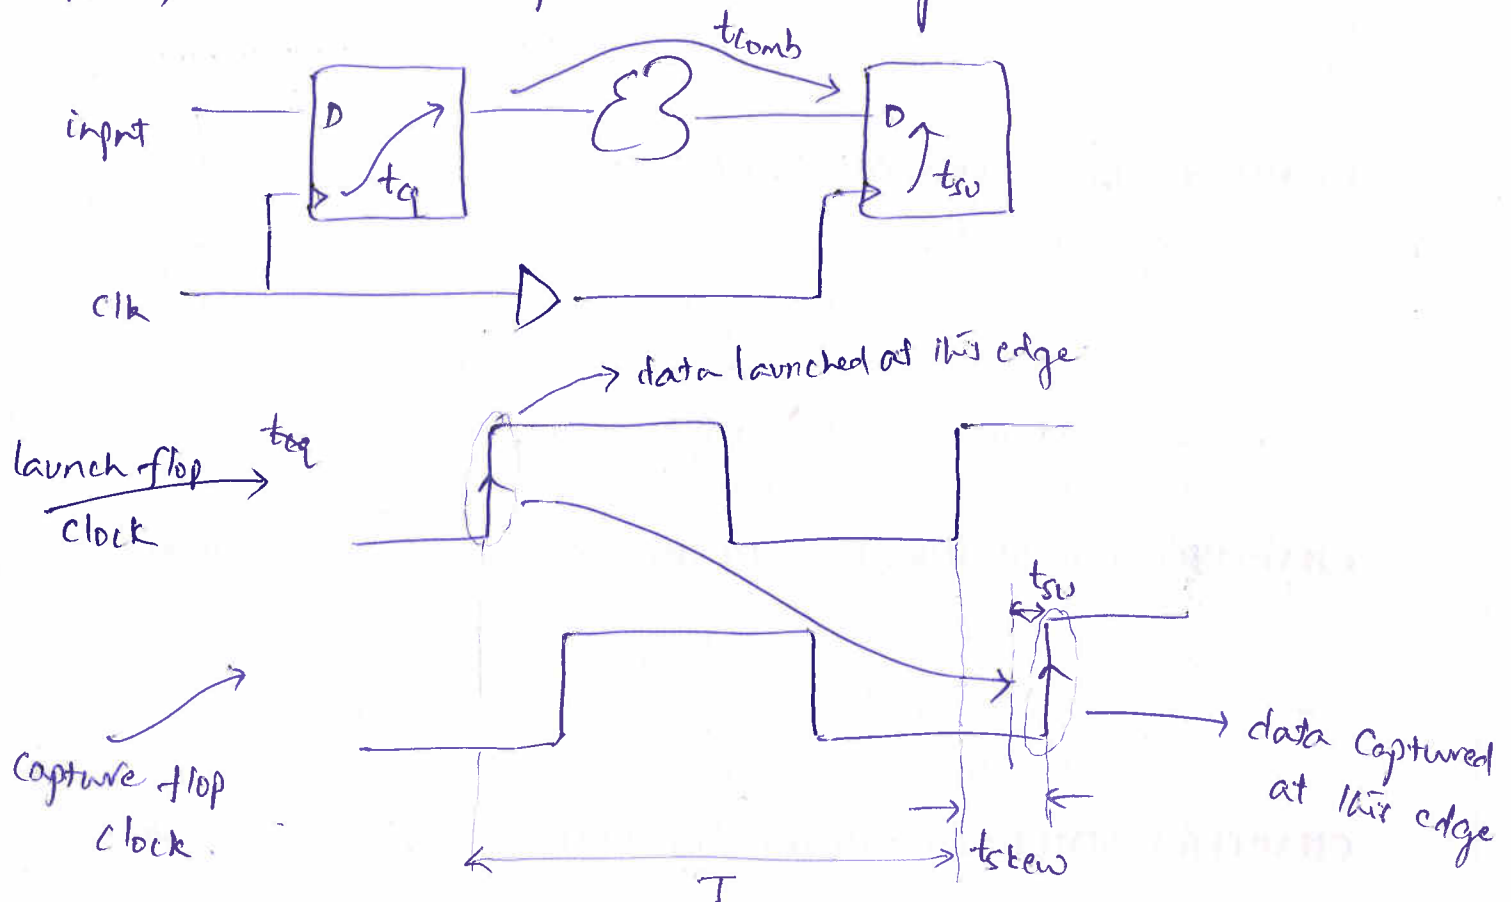 tcomb
input
D
tcq
D
tsu
clk
data launched at this edge
launch flop
clock
tcq
tsu
capture flop
clock.
data captured
at this edge
tskew
T